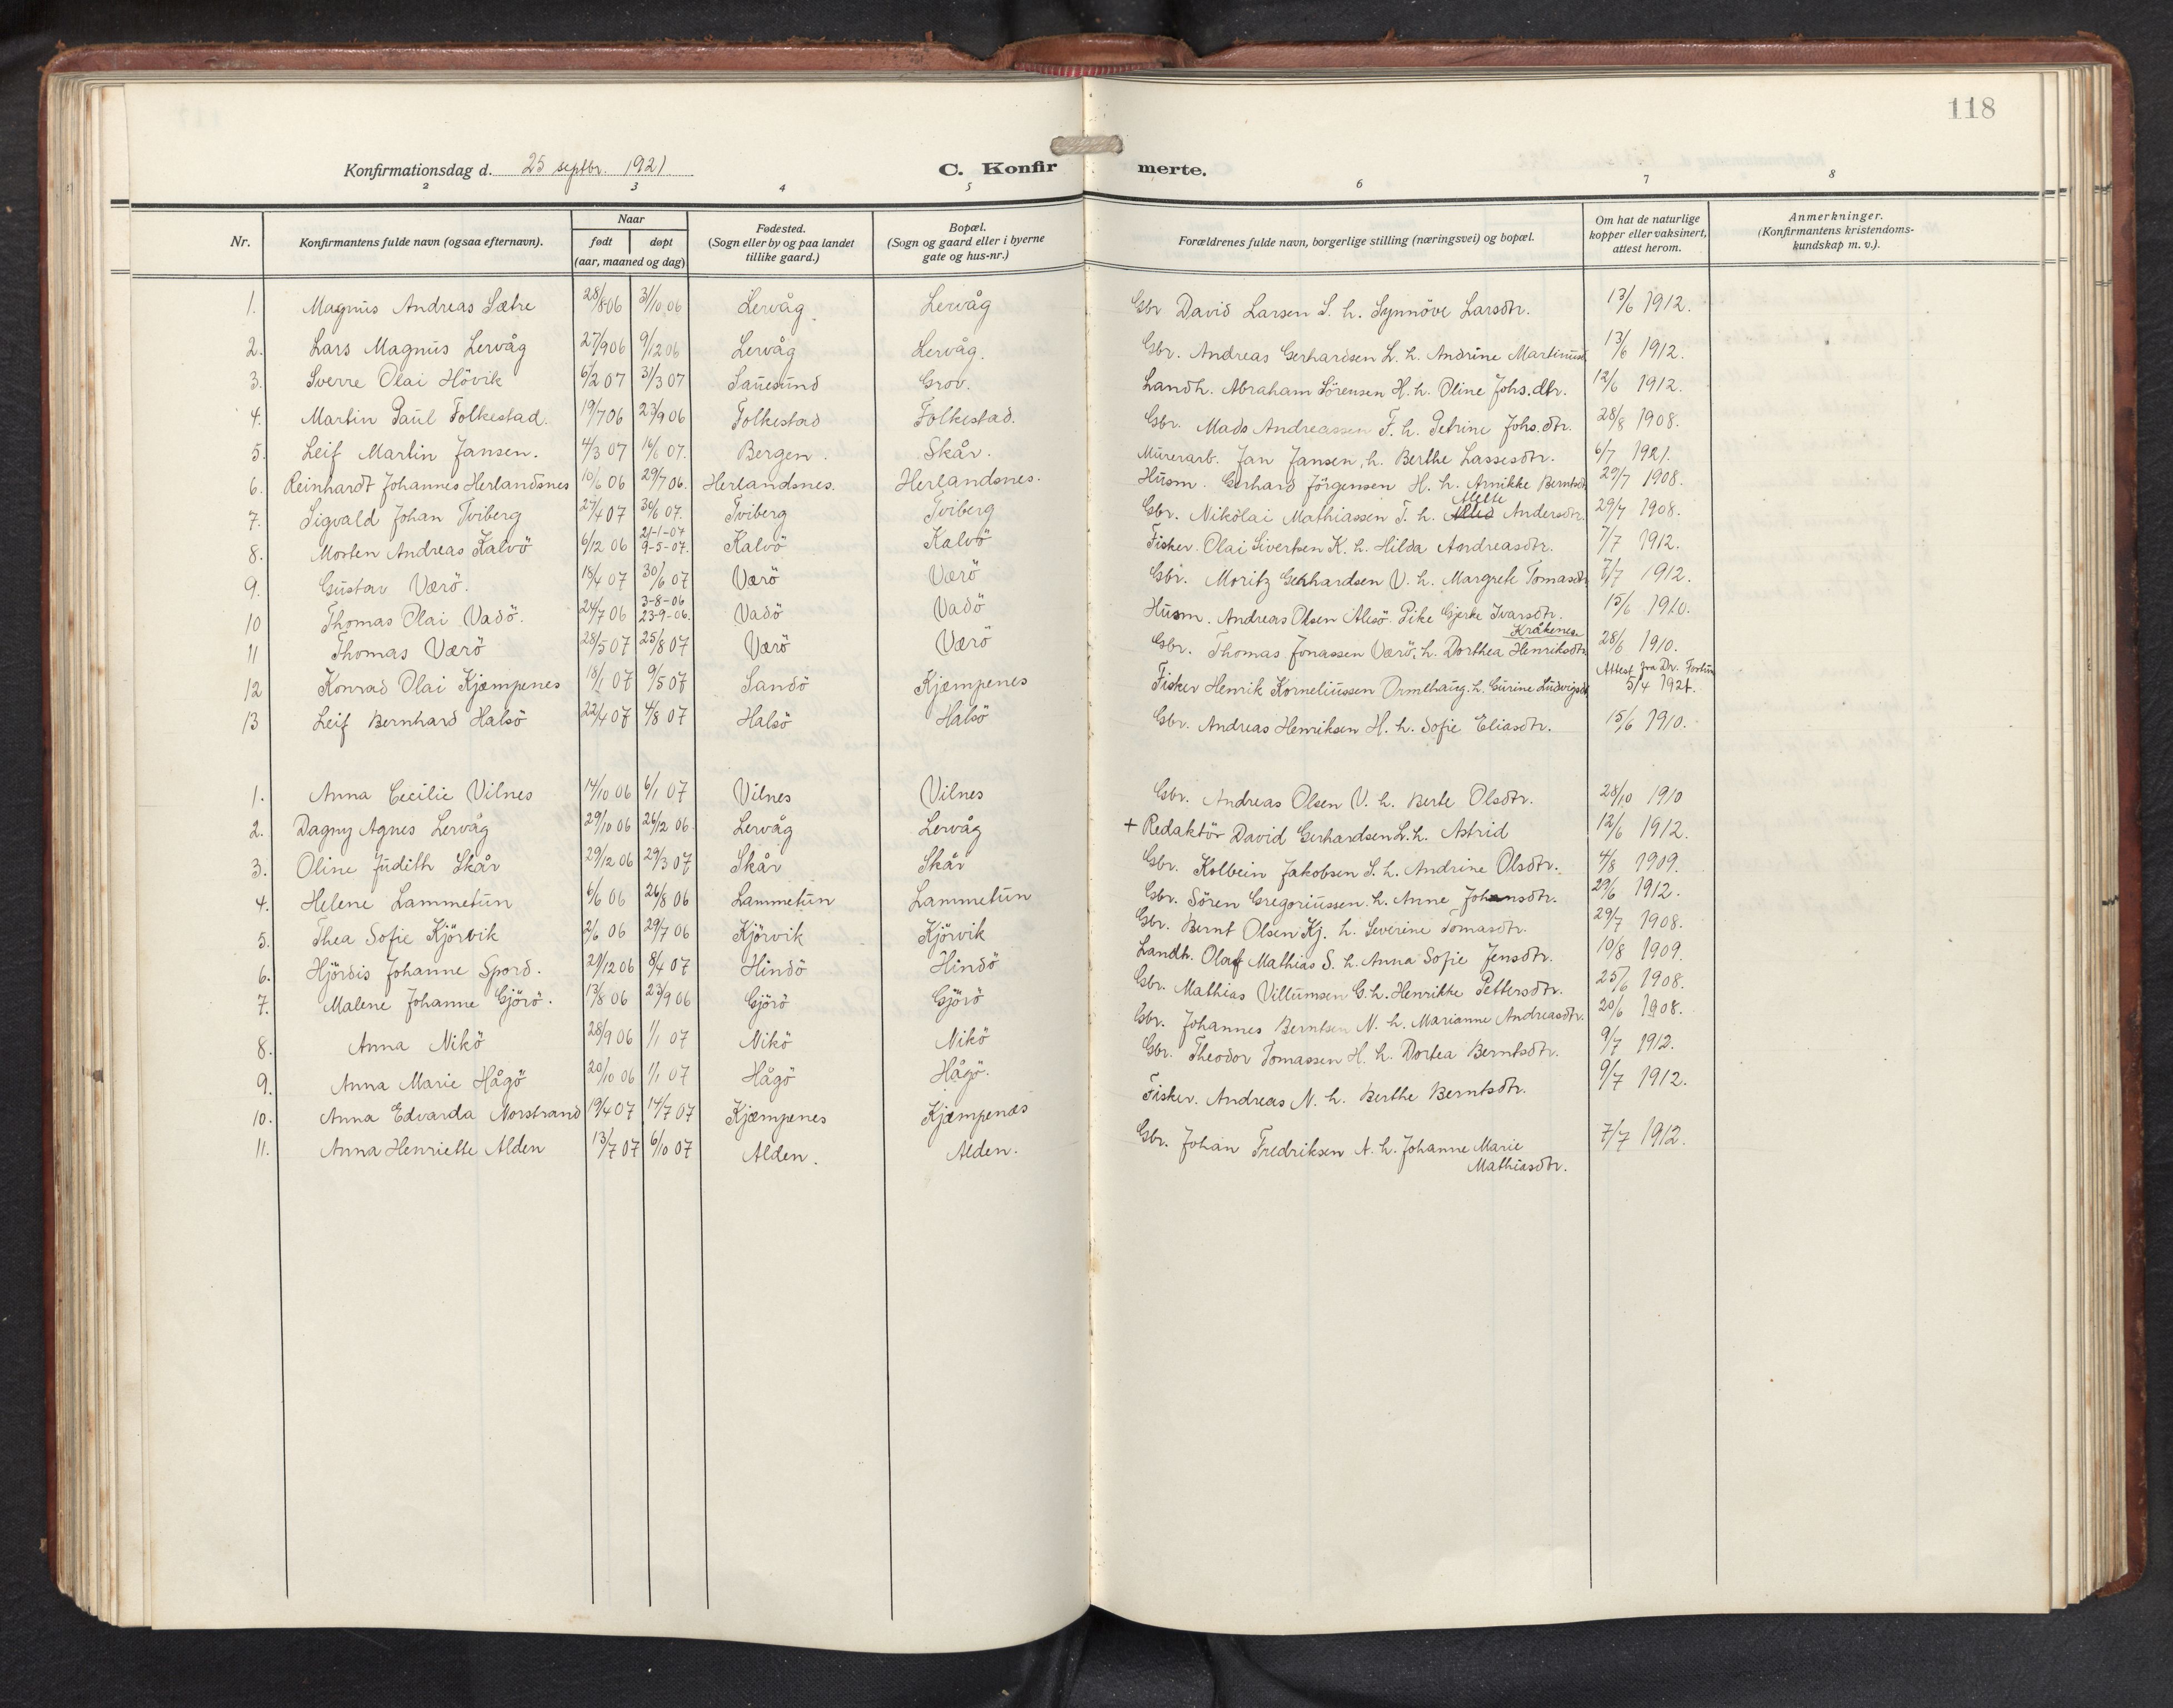 118
Konfirmationsdag d. 25 septbr. 1921
C. Konfirmerte.
2 3 4 5 6 7 8
Nr.
Konfirmantens fulde navn (ogsaa efternavn).
Naar
født døpt
(aar, maaned og dag)
Fødested.
(Sogn eller by og paa landet
tillike gaard.)
Bopæl.
(Sogn og gaard eller i byerne
gate og hus-nr.)
Forældrenes fulde navn, borgerlige stilling (næringsvei) og bopæl.
Om hat de naturlige
kopper eller vaksinert,
attest herom.
Anmerkninger.
(Konfirmantens kristendoms-
kundskap m. v.).
1. Magnus Andreas Sætre 28/8 06 31/10 06 Lervåg Lervåg Gbr David Larsen S. h. Synnöve Larsdtr. 13/6 1912.
2. Lars Magnus Lervåg 27/9 06 9/12 06 Lervåg Lervåg. Gbr. Andreas Gerhardsen L. h. Andrine Martinusd 13/6 1912.
3. Sverre Olai Hövik 6/2 07 31/3 07 Sauesund Grov. Landh. Abraham Sörensen H. h. Oline Johs.dtr. 12/6 1912.
4. Martin Paul Folkestad. 19/7 06 23/9 06 Folkestad Folkestad. Gbr. Mads Andreassen F. h. Petrine Johs.dtr. 28/8 1908.
5. Leif Martin Jansen. 4/3 07 16/6 07. Bergen. Skår. Murerarb. Jan Jansen, h. Berthe Lassesdtr. 6/7 1921.
6. Reinhardt Johannes Herlandsnes 10/6 06 29/7 06. Herlandsnes. Herlandsnes. Husm. Gerhard Jörgensen H. h. Arnikke Berntsdtr 29/7 1908.
7. Sigvald Johan Tviberg 27/4 07 30/6 07. Tviberg Tviberg Gbr. Nikolai Mathiassen T. h. Andersdtr. 29/7 1908.
8. Morten Andreas Kalvö 6/12 06 21-1-07 9-5-07. Kalvö Kalvö Fisker. Olai Sivertsen K. h. Hilda Andreasdtr. 7/7 1912.
9. Gustav Værö. 18/4 07 30/6 07 Værö Værö Gbr. Moritz Gerhardsen V. h. Margrete Tomasdtr 7/7 1912.
10 Thomas Olai Vadö. 24/7 06 3-8-06 23-9-06. Vadö Vadö Husm. Andreas Olsen Alesö. Pike Gjerke Ivarsdtr. Kråkenes. 15/6 1910.
11 Thomas Værö 28/5 07 25/8 07 Værö Værö Gbr. Thomas Jonassen Værö, h. Dorthea Henriksdtr 28/6 1910.
12 Konrad Olai Kjæmpenes 18/1 07 9/5 07 Sandö Kjæmpenes Fisker Henrik Korneliussen Ormhaug. h. Gurine Ludvigsd Attest fra Dr. Fortun 5/4 1921.
13 Leif Bernhard Halsö 22/4 07 4/8 07 Halsö Halsö Gbr. Andreas Henriksen H. h. Sofie Eliasdtr. 15/6 1910.
1. Anna Cecilie Vilnes 14/10 06 6/1 07 Vilnes Vilnes Gbr. Andreas Olsen V. h. Berte Olsdtr. 28/10 1910
2. Dagny Agnes Lervåg 29/10 06 26/12 06. Lervåg Lervåg + Redaktör David Gerhardsen L. h. Astrid 12/6 1912.
3. Oline Judith Skår 29/12 06 29/3 07 Skår Skår Gbr. Kolbein Jakobsen S. h. Andrine Olsdtr. 4/8 1909.
4. Helene Lammetun 6/6 06 26/8 06 Lammetun Lammetun Gbr. Sören Gregoriussen. h. Anne Johansdtr. 29/6 1912.
5. Thea Sofie Kjörvik 2/6 06 29/7 06 Kjörvik Kjörvik Gbr. Bernt Olsen Kj. h. Severine Tomasdtr. 29/7 1908.
6. Hjördis Johanne Spord. 29/12 06 8/4 07 Hindö Hindö Landh. Olaf Mathias S. h. Anna Sofie Jensdtr. 10/8 1909.
7. Malene Johanne Gjörö. 13/8 06 23/9 06 Gjörö Gjörö Gbr. Mathias Villumsen G. h. Henrikke Pettersdtr. 25/6 1908.
8. Anna Nikö 28/9 06 1/1 07 Nikö Nikö Gbr. Johannes Berntsen N. h. Marianne Andreasdtr. 20/6 1908.
9. Anna Marie Hågö 20/10 06 1/1 07 Hågö Hågö. Gbr. Theodor Tomassen H. h. Dortea Berntsdtr. 9/7 1912.
10. Anna Edvarda Norstrand 19/4 07 14/7 07 Kjæmpenes Kjæmpenæs Fisker. Andreas N. h. Berthe Berntsdtr. 9/7 1912.
11. Anna Henriette Alden 13/7 07 6/10 07 Alden. Alden. Gbr. Johan Fredriksen A. h. Johanne Marie Mathiasdtr. 7/7 1912.